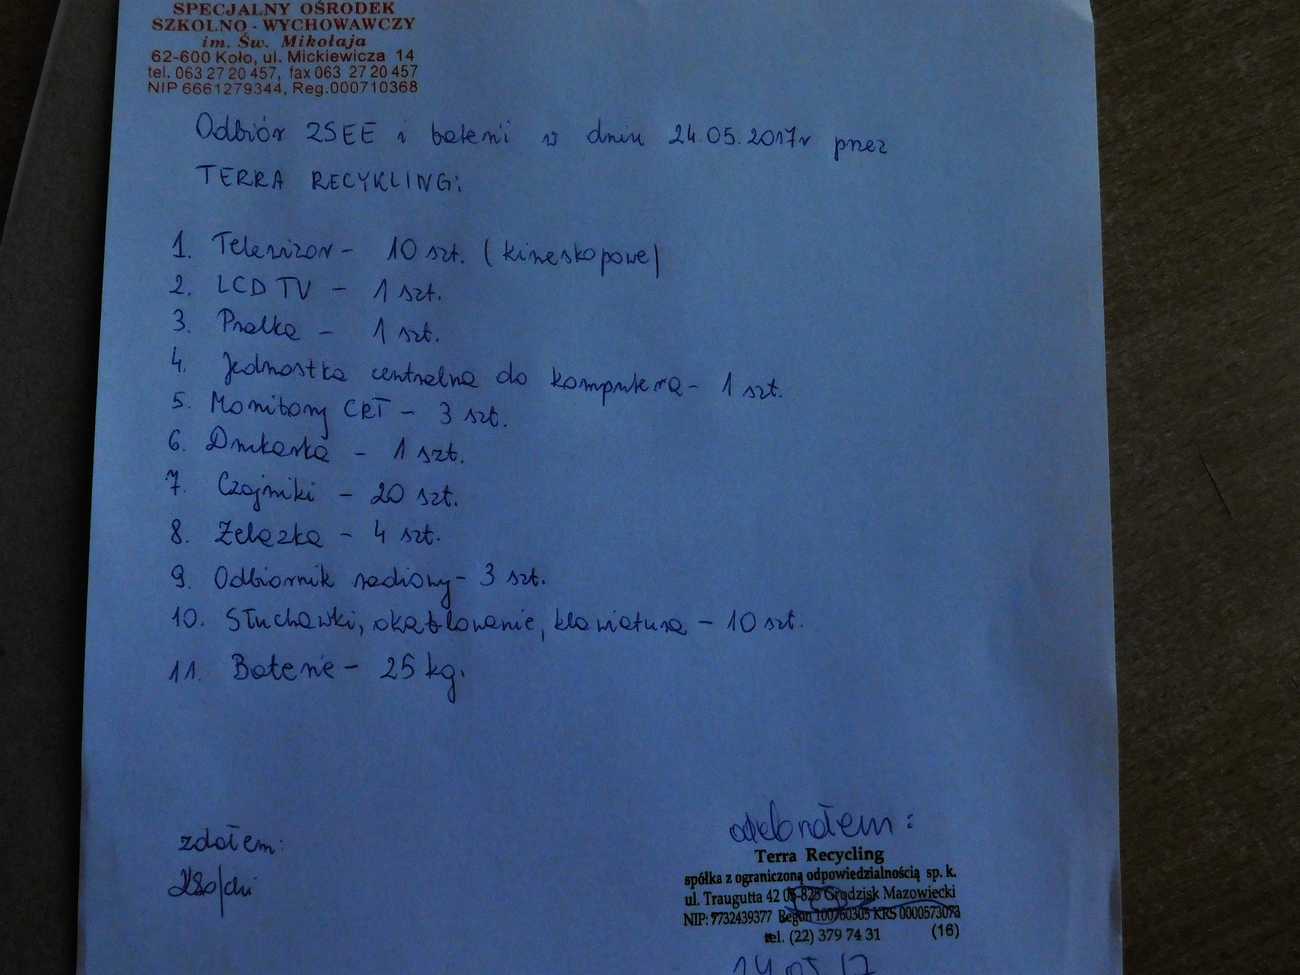 SPECJALNY OŚRODEK
SZKOLNO - WYCHOWAWCZY
im. Św. Mikołaja
62-600 Koło, ul. Mickiewicza 14
tel. 063 27 20 457, fax 063 27 20 457
NIP 6661279344, Reg.000710368
Odbiór ZSEE i baterii w dniu 24.05.2017r przez
TERRA RECYKLING:
1. Telewizor - 10 szt. (kineskopowe)
2. LCD TV - 1 szt.
3. Pralka - 1 szt.
4. Jednostka centralna do komputera - 1 szt.
5. Monitory CRT - 3 szt.
6. Drukarka - 1 szt.
7. Czajniki - 20 szt.
8. Żelazka - 4 szt.
9. Odbiornik radiowy - 3 szt.
10. Słuchawki, okablowanie, klawiatura - 10 szt.
11. Baterie - 25 kg.
zdałem:
odebrałem:
Terra Recycling
spółka z ograniczoną odpowiedzialnością sp. k.
ul. Traugutta 42 05-825 Grodzisk Mazowiecki
NIP: 7732439377 Regon 100760305 KRS 0000573073
tel. (22) 379 74 31 (16)